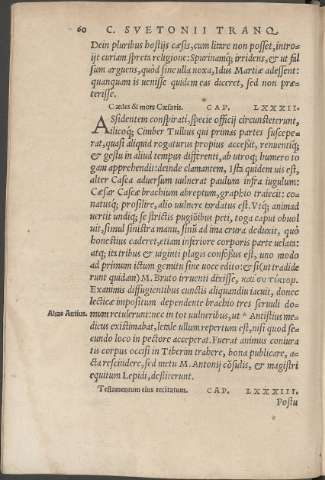 60 C. SVETONII TRANQ.
Dein pluribus hostijs cæsis, cum litare non posset, intro-
ijt curiam spreta religione: Spurinamq; irridens, & ut fal
sum arguens, quòd sine ulla noxa, Idus Martiæ adessent:
quanquam is uenisse quidem eas diceret, sed non præ-
terisse.
Cædes & mors Cæsaris. CAP. LXXXII.
ASsidentem conspirati, specie officij circunsteterunt,
ilicoq; Cimber Tullius qui primas partes suscepe-
rat, quasi aliquid rogaturus propius accessit, renuentiq;
& gestu in aliud tempus differenti, ab utroq; humero to
gam apprehendit: deinde clamantem, Ista quidem uis est,
alter Casca aduersum uulnerat paulum infra iugulum:
Cæsar Cascæ brachium abreptum, graphio traiecit: co-
natusq; prosilire, alio uulnere tardatus est. Vtq; animad
uertit undiq; se strictis pugiōibus peti, toga caput obuol
uit, simul sinistra manu, sinū ad ima crura deduxit, quò
honestius caderet, etiam inferiore corporis parte uelata:
atq; ita tribus & uiginti plagis confossus est, uno modo
ad primum ictum gemitu sine uoce edito: & si (ut tradide
runt quidam) M. Bruto irruenti dixisse, καὶ σὺ τέκνον.
Exanimis diffugientibus cunctis aliquandiu iacuit, donec
lecticæ impositum dependente brachio tres seruuli do-
Alias Antius. mum retulerunt: nec in tot uulneribus, ut * Antistius me-
dicus existimabat, letale ullum repertum est, nisi quod se-
cundo loco in pectore acceperat. Fuerat animus coniura
tis corpus occisi in Tiberim trahere, bona publicare, a-
cta rescindere, sed metu M. Antonij cōsulis, & magistri
equitum Lepidi, destiterunt.
Testamentum eius recitatum. CAP. LXXXIII.
Postu